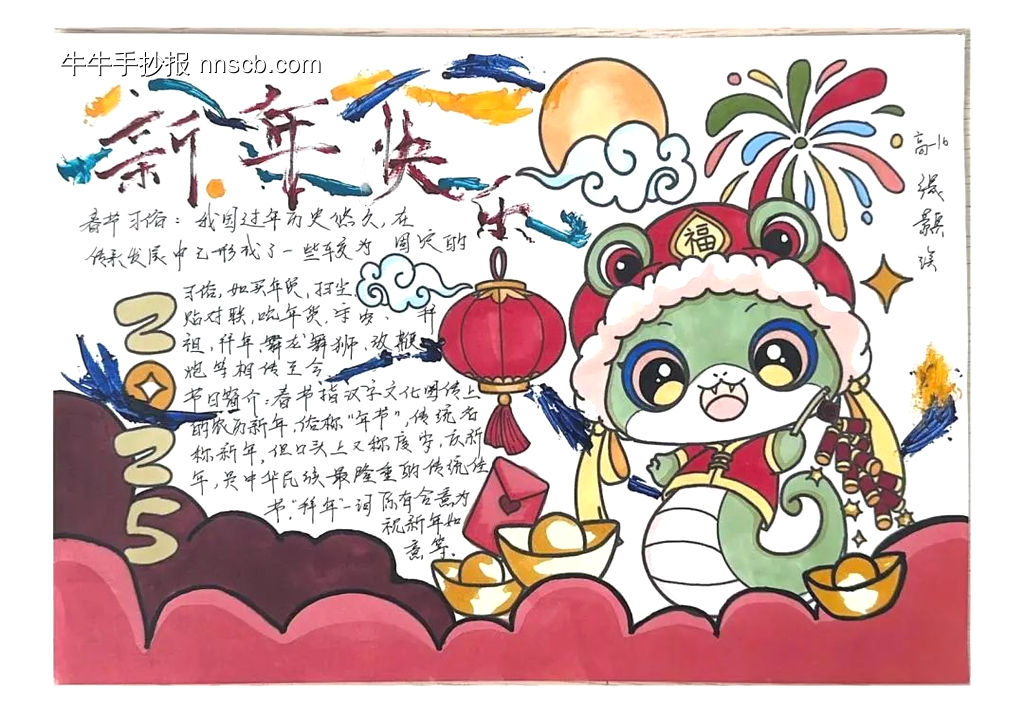 牛牛手抄报 nnscb.com
新年快乐
福
高一16
春节习俗：我国过年历史悠久，在
传承发展中已形成了一些较为固定的
习俗，如买年货，扫尘，
贴对联，吃年货，守岁、拜
祖，拜年，舞龙舞狮，放鞭
炮等相传至今
节日简介：春节指汉字文化圈传上
的农历新年，俗称“年节”，传统名
称新年，但口头上又称度岁，庆新
年，是中华民族最隆重的传统佳
节，“拜年”一词原有含意为
祝新年如
意等、
2025